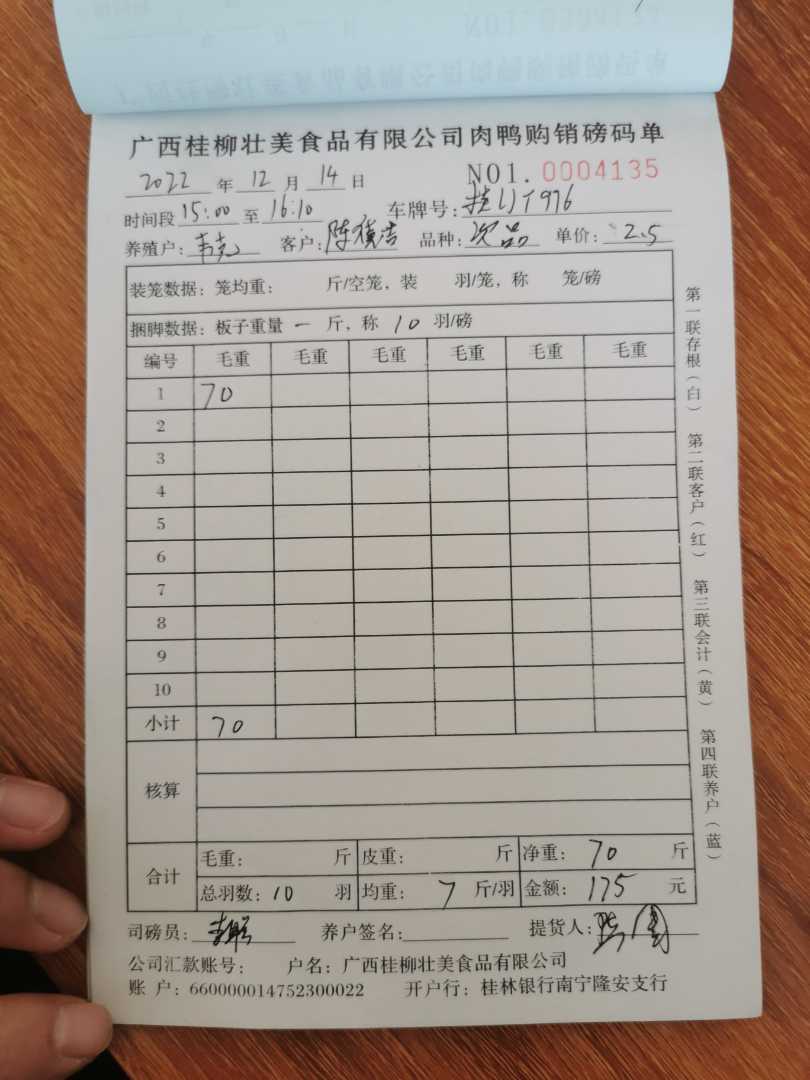 广西桂柳壮美食品有限公司肉鸭购销磅码单
2022 年 12 月 14 日 NO1. 0004135
时间段 15:00 至 16:10 车牌号:
养殖户: 客户: 陈 品种: 次品 单价: 2.5
装笼数据: 笼均重: 斤/空笼, 装 羽/笼, 称 笼/磅
捆脚数据: 板子重量 一 斤, 称 10 羽/磅
编号 毛重 毛重 毛重 毛重 毛重 毛重
1 70
2
3
4
5
6
7
8
9
10
小计 70
核算
合计 毛重: 斤 皮重: 斤 净重: 70 斤
总羽数: 10 羽 均重: 7 斤/羽 金额: 175 元
司磅员: 养户签名: 提货人:
公司汇款账号: 户名: 广西桂柳壮美食品有限公司
账 户: 660000014752300022 开户行: 桂林银行南宁隆安支行
第一联存根(白) 第二联客户(红) 第三联会计(黄) 第四联养户(蓝)